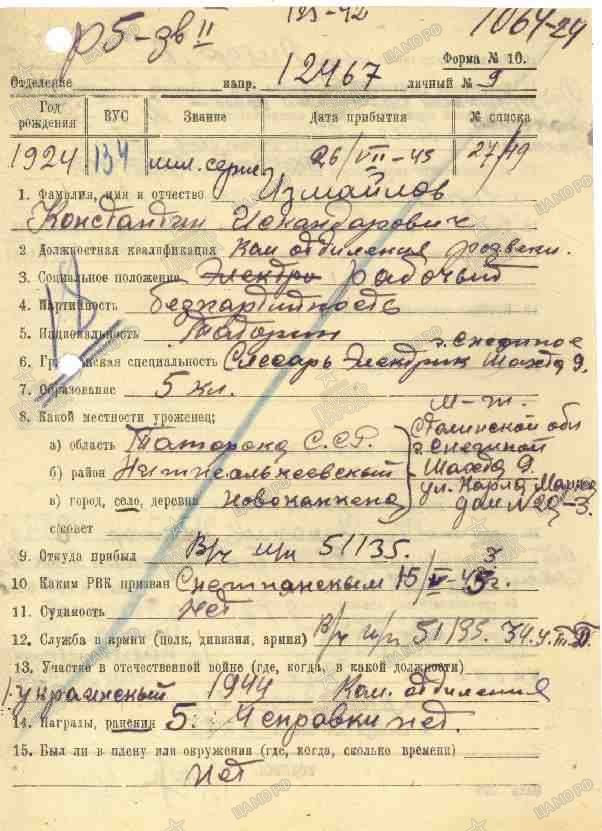 р5-зв II 123-42 1064-24
Форма № 10.
Отделение напр. 12467 личный № 9
Год рождения ВУС Звание Дата прибытия № списка
1924 134 мл. серж. 26/VII-45 27/49
1. Фамилия, имя и отчество Измайлов
Константин Искандарович
2 Должностная квалификация Ком отбиления розвеки.
3. Социальное положение Электро рабочый
4. Партийность безпартийность
5. Национальность Таторин
6. Гражданская специальность Слесарь Электрик Шахта 9. г. Снежное
7. Образование 5 кл. м-ж.
8. Какой местности уроженец;
а) область Таторска С.С.Р. Сталинской обл
г. Снежной
б) район Нижнеалькеевский Шахта 9.
ул. Карла Маркса
в) город, село, деревня Новокаккена дом № 20-3.
с/совет
9. Откуда прибыл В/ч п/п 51135.
10. Каким РВК призван Снежнянскым 15/V-43г.
11. Судимость нет
12. Служба в армии (полк, дивизия, армия) В/ч п/п 51135.
13. Участие в отечественной войне (где, когда, в какой должности)
1. украинскый 1944 Ком. отбиления
14. Награды, ранения 5. справки нет.
15. Был ли в плену или окружении (где, когда, сколько времени)
нет